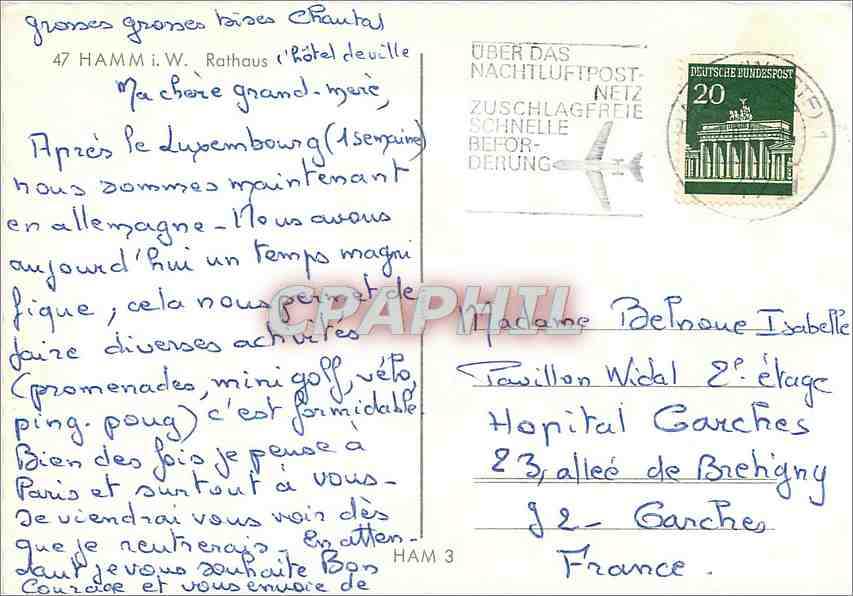 grosses grosses bises Chantal
47 HAMM i. W. Rathaus l'hôtel de ville
Ma chère grand-mère,
Après le Luxembourg (1 semaine)
nous sommes maintenant
en allemagne - Nous avons
aujourd'hui un temps magni
fique, cela nous permet de
faire diverses activités
(promenades, mini golf, vélo,
ping-pong) c'est formidable.
Bien des fois je pense à
Paris et surtout à vous -
Je viendrai vous voir dès
que je rentrerais - En atten-
dant je vous souhaite Bon
Courage et vous envoie de
HAM 3
ÜBER DAS
NACHTLUFTPOST-
NETZ
ZUSCHLAGFREIE
SCHNELLE
BEFÖR-
DERUNG
DEUTSCHE BUNDESPOST
20
CPAPHIL
Madame Belnoue Isabelle
Pavillon Widal 2e étage
Hopital Garches
23, alleé de Bretigny
92 - Garches
France.